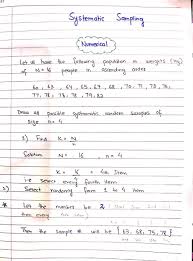 Systematic Sampling
Numerical
Let us have the following population in weights (kg)
of N=16 people in ascending order
60, 63, 64, 65, 67, 68, 70, 71, 73, 75,
77, 78, 78, 79, 82
Draw all possible systematic random samples of
size n = 4
1) Find K = N/n
Solution N = 16, n = 4
K = 16/4 = 4th Item
i.e select every fourth item
2) Select randomly from 1 to 4 item
Let the number be 2
then every
Then the sample # will be { 63, 68, 75, 78 }